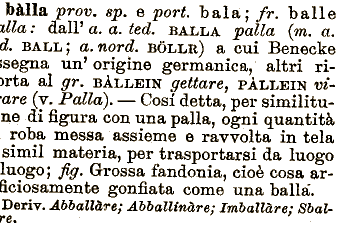 bàlla prov. sp. e port. bala; fr. balle
alla: dall' a. a. ted. BALLA palla (m. a.
d. BALL; a. nord. BÖLLR) a cui Benecke
ssegna un' origine germanica, altri ri-
orta al gr. BÀLLEIN gettare, PÀLLEIN vi-
rare (v. Palla). — Così detta, per similitu-
ne di figura con una palla, ogni quantità
roba messa assieme e ravvolta in tela
simil materia, per trasportarsi da luogo
luogo; fig. Grossa fandonia, cioè cosa ar-
ficiosamente gonfiata come una balla.
Deriv. Abballàre; Abballinàre; Imballàre; Sbal-
re.